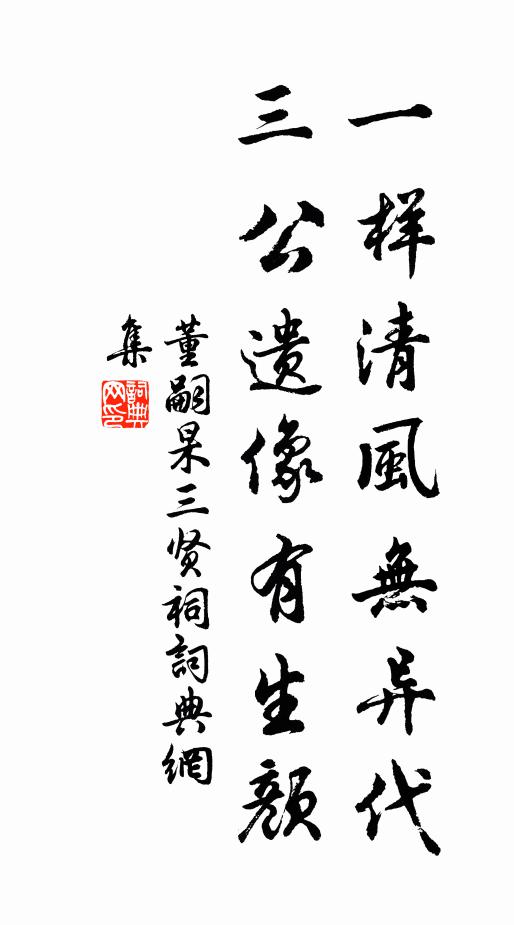 一样清風無异代
三公遗像有生颜
董嗣杲三贤祠詞典網
集
詞典網印